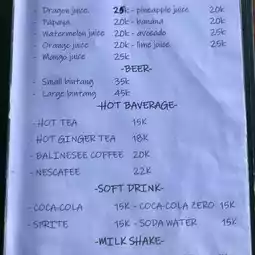 - Dragon juice 25k - pineapple juice 20k
- Papaya 20k - banana 20k
- Watermelon juice 20k - avocado 25k
- Orange juice 20k - lime juice 25k
- Mango juice 25k
-BEER-
- Small bintang 35k
- Large bintang 45k
-HOT BAVERAGE-
-HOT TEA 15K
HOT GINGER TEA 18K
- BALINESEE COFFEE 20K
- NESCAFEE 22K
-SOFT DRINK-
-COCA-COLA 15K - COCA-COLA ZERO 15K
- SPRITE 15K - SODA WATER 15K
-MILK SHAKE-